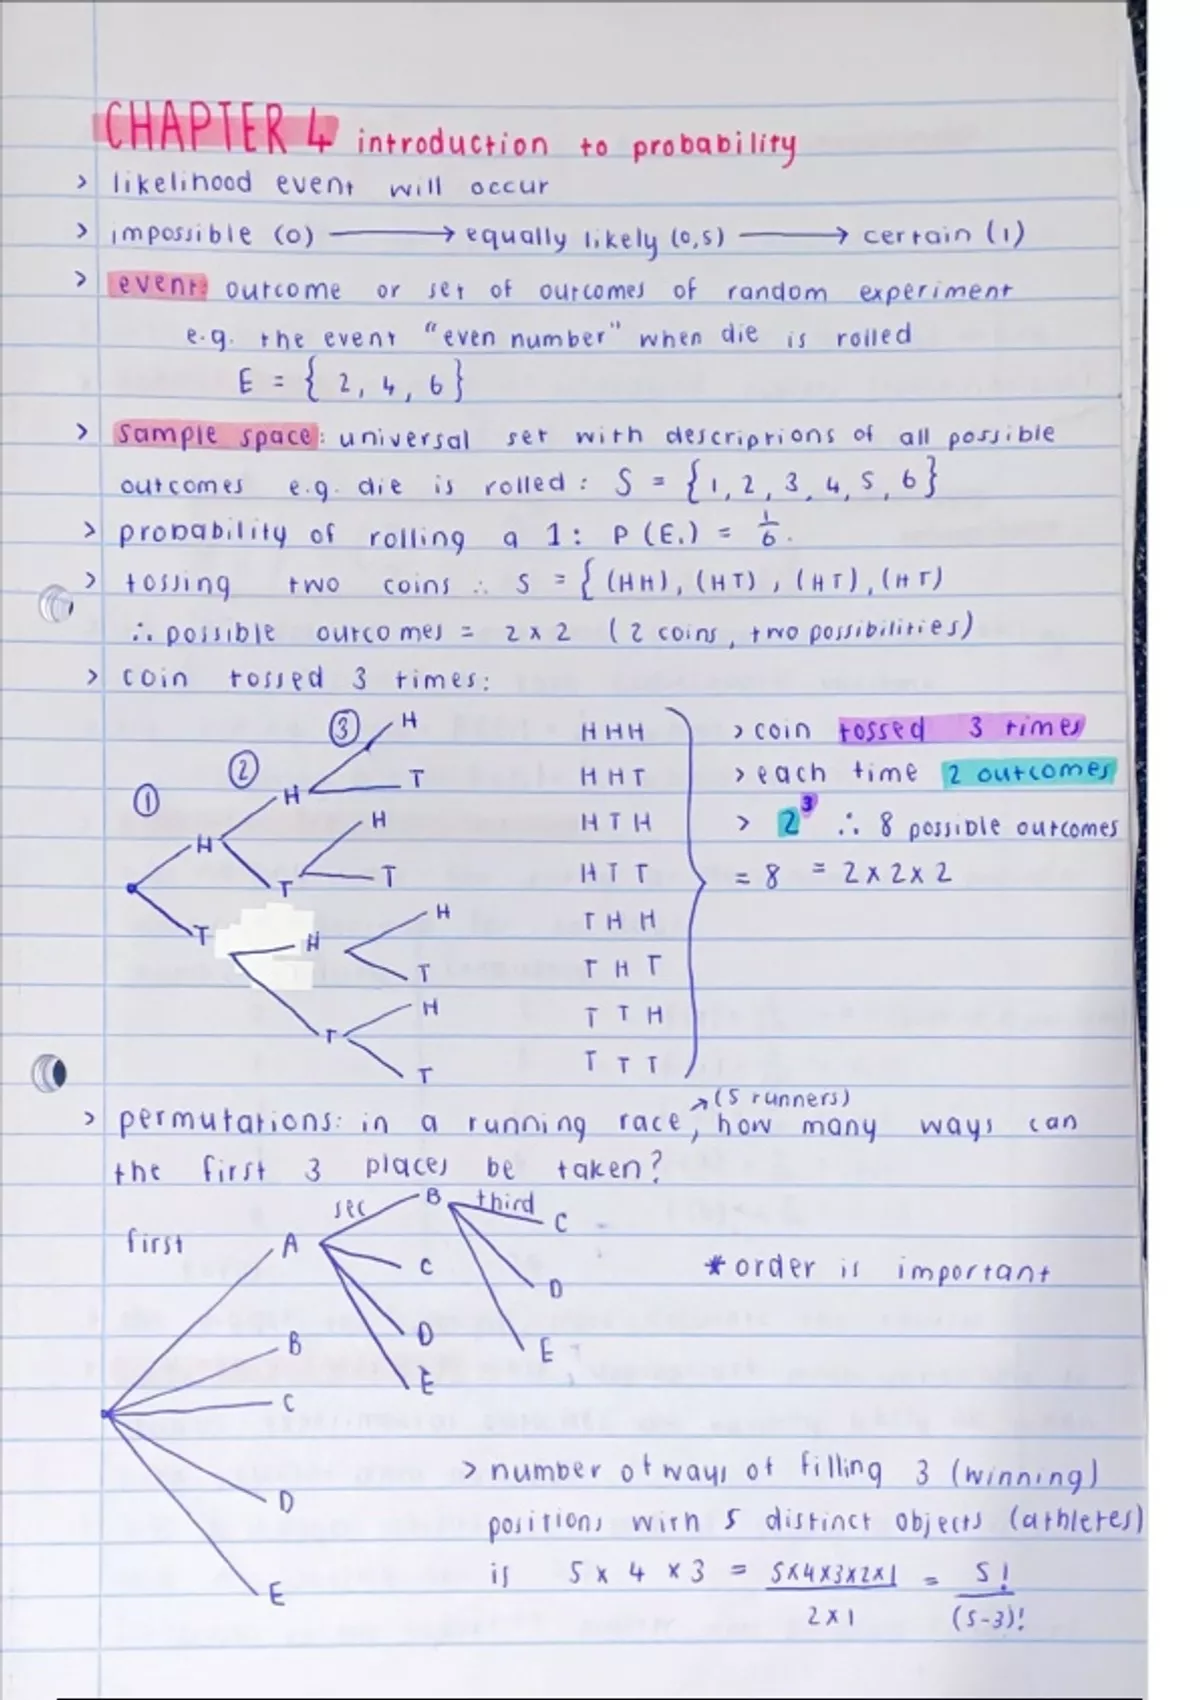 CHAPTER 4 introduction to probability
> likelihood event will occur
> impossible (0) ⟶ equally likely (0,5) ⟶ certain (1)
> event: outcome or set of outcomes of random experiment
e.g. the event "even number" when die is rolled
E = { 2, 4, 6}
> sample space: universal set with descriptions of all possible
outcomes e.g. die is rolled: S = {1, 2, 3, 4, 5, 6}
> probability of rolling a 1: P(E₁) = 1/6.
> tossing two coins ∴ S = { (HH), (HT), (HT), (HT)
∴ possible outcomes = 2 x 2 (2 coins, two possibilities)
> coin tossed 3 times:
① ② ③
H T
H T
H T H T
H T H T H T H T
HHH
HHT
HTH
HTT
THH
THT
TTH
TTT
> coin tossed 3 times
> each time 2 outcomes
> 2³ ∴ 8 possible outcomes
= 8 = 2 x 2 x 2
> permutations: in a running race, how many ways can
(5 runners)
the first 3 places be taken?
first sec third
A B C D E
B C D E
C D E
* order is important
> number of ways of filling 3 (winning)
positions with 5 distinct objects (athletes)
is 5 x 4 x 3 = 5x4x3x2x1 / 2x1 = 5! / (5-3)!